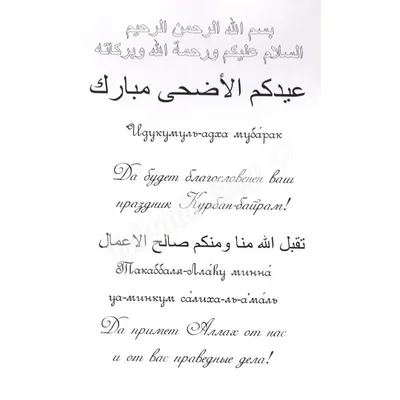 بسم الله الرحمن الرحيم
السلام عليكم ورحمة الله وبركاته
عيدكم الأضحى مبارك
Идукумуль-адха мубáрак
Да будет благословенен ваш
праздник Курбан-байрам!
تقبل الله منا ومنكم صالح الاعمال
Такаббаля-Ллáhу миннá
уа-минкум сáлиха-ль-а'мáль
Да примет Аллах от нас
и от вас праведные дела!